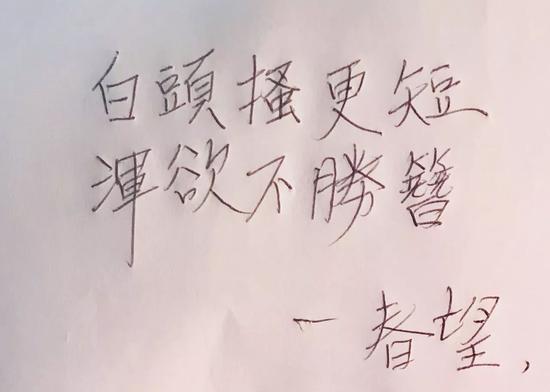 白頭搔更短
渾欲不勝簪
－春望,